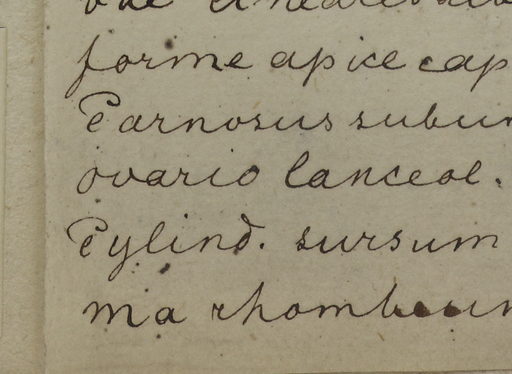 forme apice cap
Carnosus subun
ovario lanceol.
Cylind. sursum
ma rhombeum